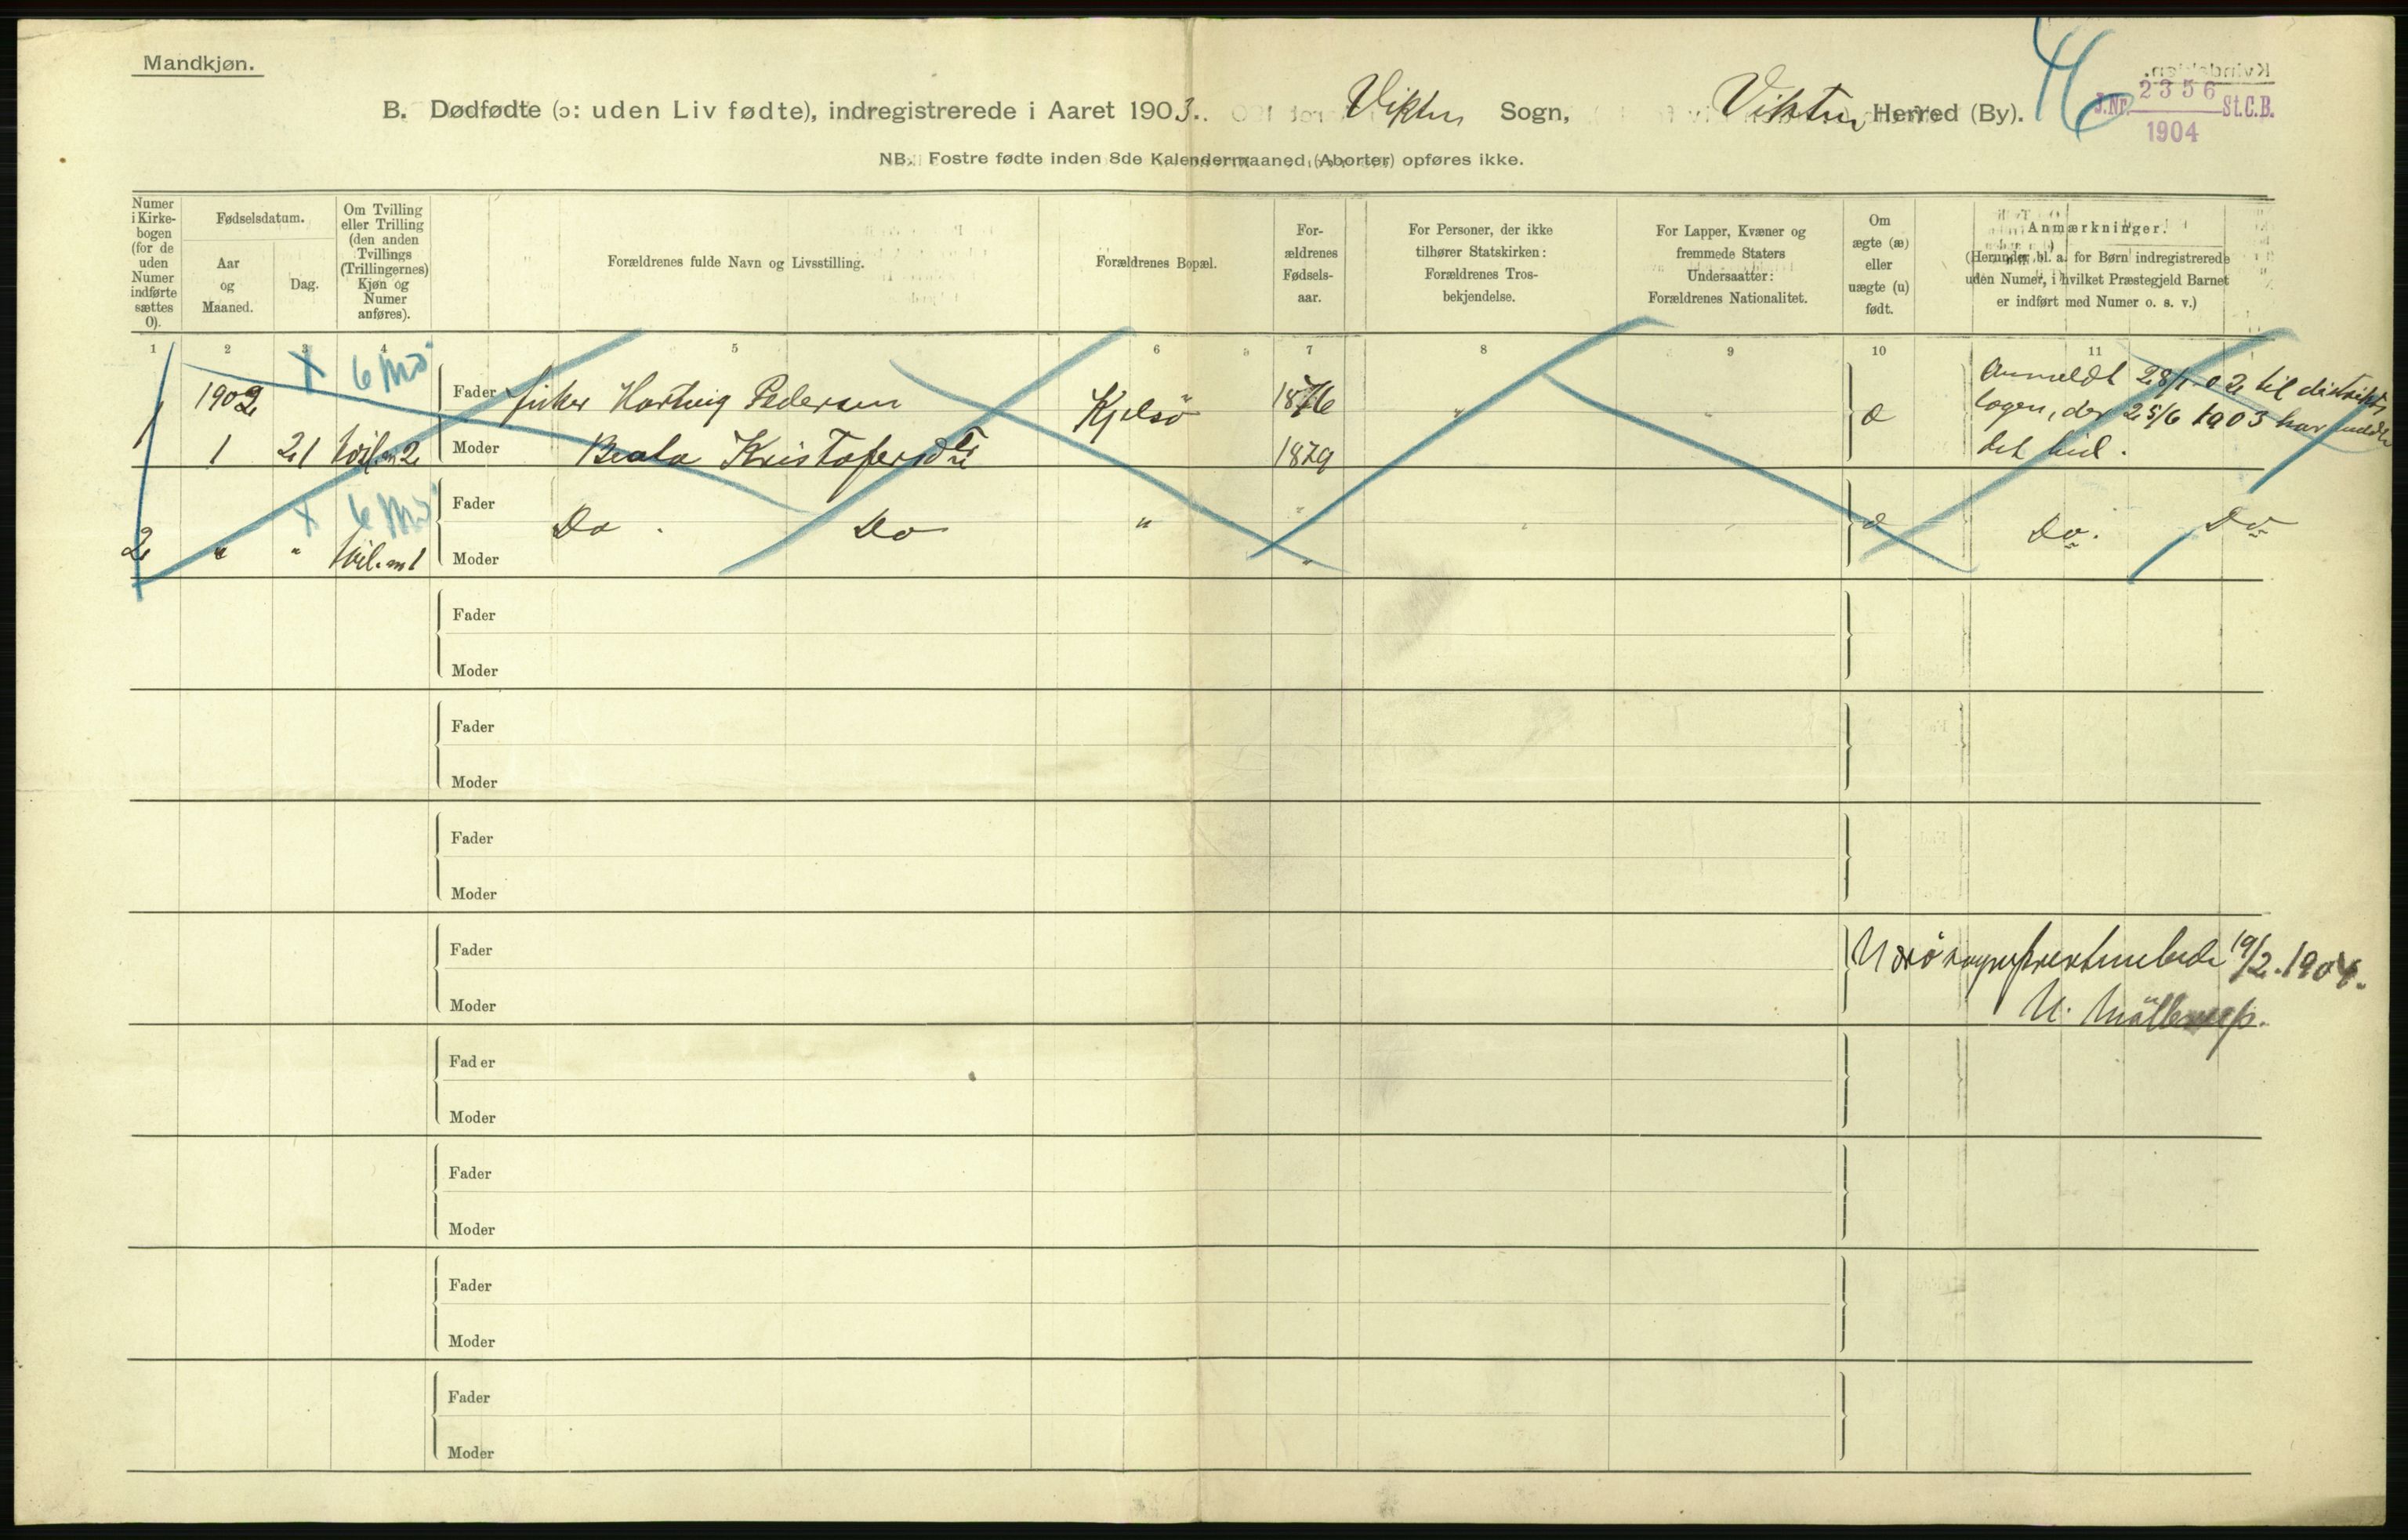 Mandkjøn.
B. Dødfødte (ɔ: uden Liv fødte), indregistrerede i Aaret 1903. Vikten Sogn, Vikten Herred (By).
46
J.Nr. 2356 St.C.B.
1904
NB. Fostre fødte inden 8de Kalendermaaned (Aborter) opføres ikke.
Numer i Kirkebogen (for de uden Numer indførte sættes 0).
Fødselsdatum.
Aar og Maaned.
Dag.
Om Tvilling eller Trilling (den anden Tvillings (Trillingernes) Kjøn og Numer anføres).
Forældrenes fulde Navn og Livsstilling.
Forældrenes Bopæl.
Forældrenes Fødselsaar.
For Personer, der ikke tilhører Statskirken: Forældrenes Trosbekjendelse.
For Lapper, Kvæner og fremmede Staters Undersaatter: Forældrenes Nationalitet.
Om ægte (æ) eller uægte (u) født.
Anmærkninger.
(Herunder bl. a. for Børn indregistrerede uden Numer, i hvilket Præstegjeld Barnet er indført med Numer o. s. v.)
1 2 3 4 5 6 7 8 9 10 11
x 6 Md
1 1902 Fader fisker Hartvig Pedersen Kjelsö 1876 " " æ Anmeldt 28/1 02 til distrikts
lægen, der 25/6 1903 har meldt
1 21 tvil. m 2 Moder Beata Kristofersdtr 1879 det hid.
x 6 Md
Fader Do. Do " " æ Do. Do
2 " " tvil. m 1 Moder "
Fader
Moder
Fader
Moder
Fader
Moder
Fader 19/2. 1904.
Moder
Fader
Moder
Fader
Moder
Fader
Moder
Fader
Moder